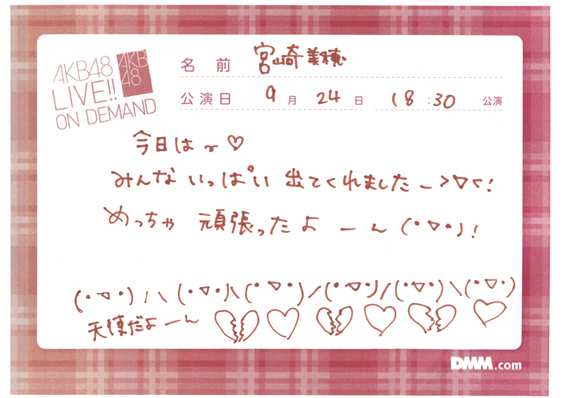 AKB48
LIVE!!
ON DEMAND
AKB
48
名前 宮崎美穂
公演日 9月24日 18:30 公演
今日は〜♡
みんないっぱい出てくれましたー>▽<!
めっちゃ 頑張ったよーん(・▽・)!
(・▽・)/\(・▽・)\(・▽・)/(・▽・)/(・▽・)\(・▽・)
天使だよーん 💔♡💔♡💔♡
DMM.com